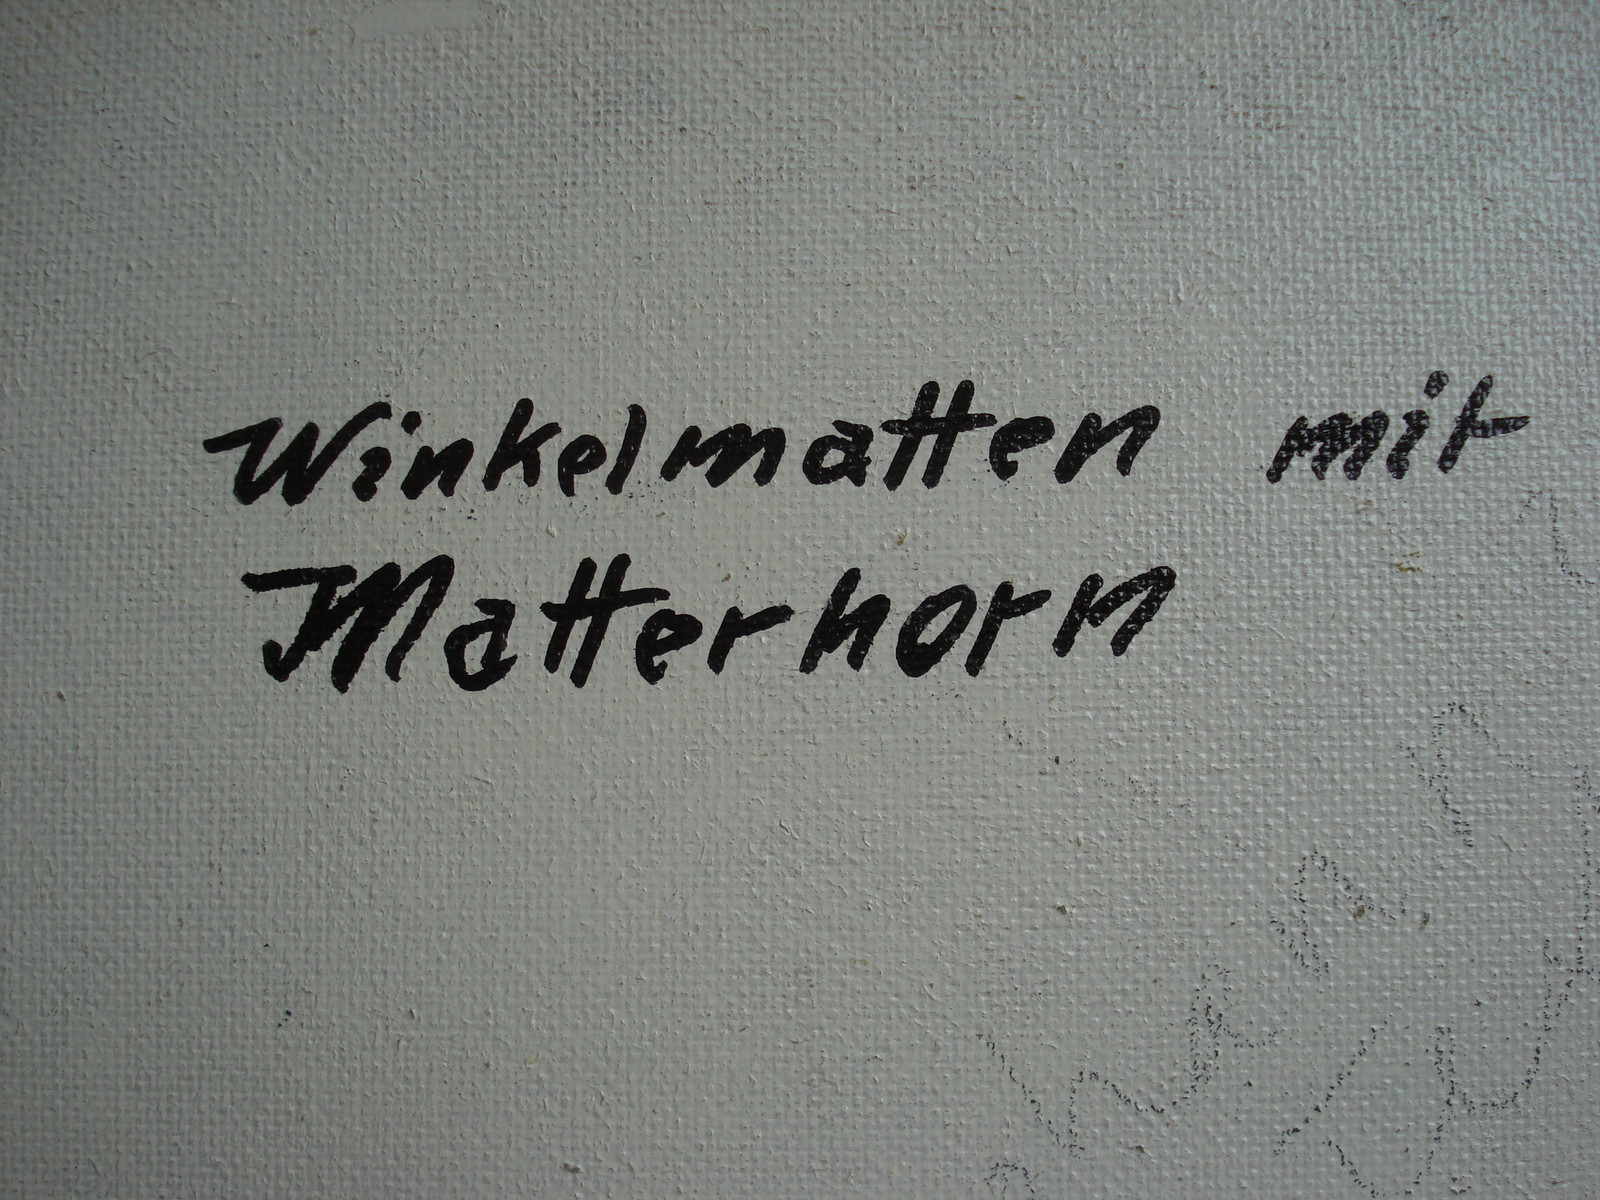 Winkelmatten mit
Matterhorn